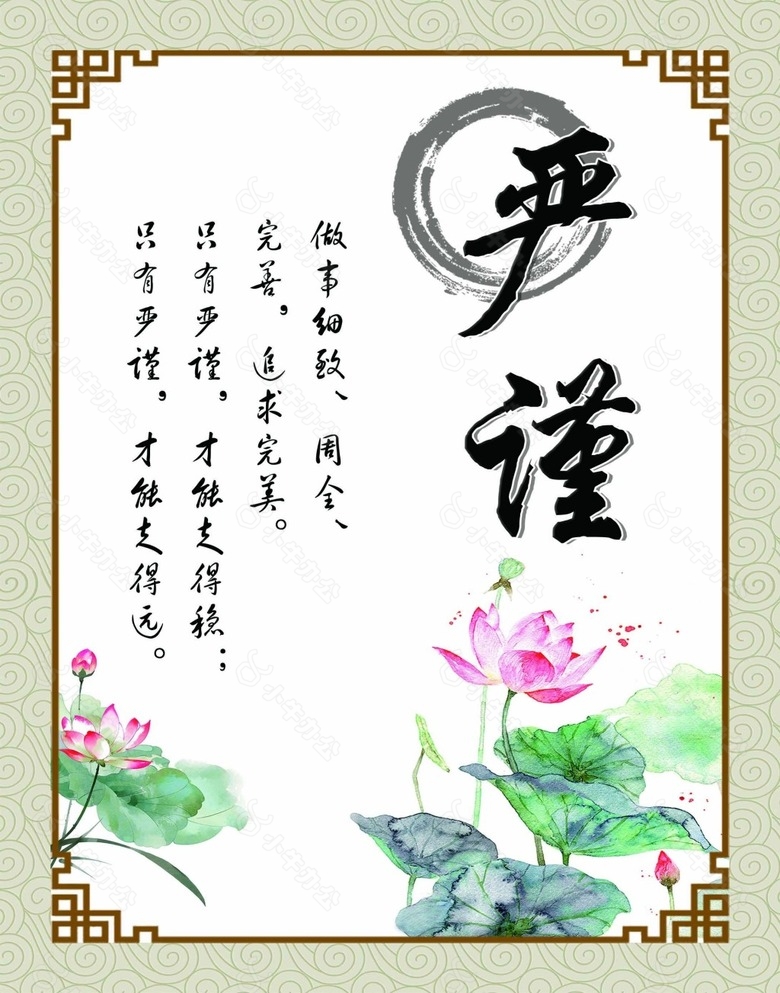 严谨
做事细致、周全、
完善，追求完美。
只有严谨，才能走得稳；
只有严谨，才能走得远。
小牛办公